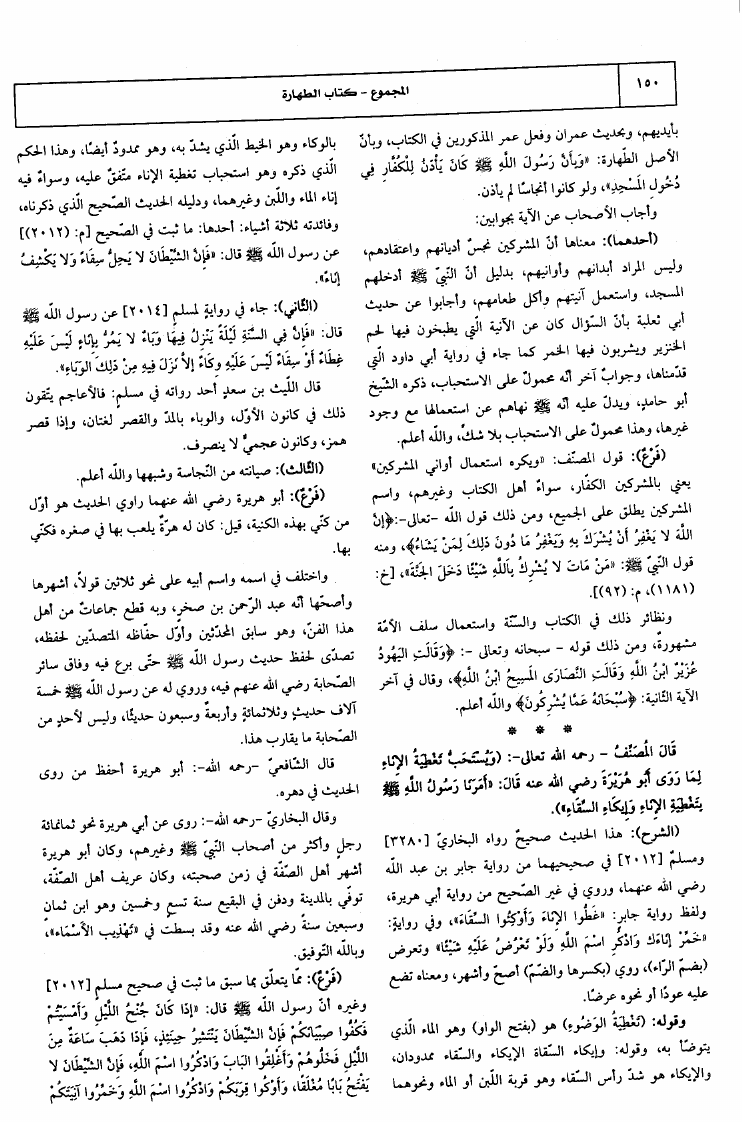 ١٥٠
المجموع - كتاب الطهارة
بأيديهم، وبحديث عمران وفعل عمر المذكورين في الكتاب، وبأنّ
الأصل الطّهارة: «وَبَأَنَّ رَسُولَ اللَّهِ ﷺ كَانَ يَأْذَنُ لِلْكُفَّارِ فِي
دُخُولِ المَسْجِدِ»، ولو كانوا أنجاسًا لم يأذن.
وأجاب الأصحاب عن الآية بجوابين:
(أحدهما): معناها أنّ المشركين نجسٌ أديانهم واعتقادهم،
وليس المراد أبدانهم وأوانيهم، بدليل أنّ النبيّ ﷺ أدخلهم
المسجد، واستعمل آنيتهم وأكل طعامهم، وأجابوا عن حديث
أبي ثعلبة بأنّ السّؤال كان عن الآنية الّتي يطبخون فيها لحم
الخنزير ويشربون فيها الخمر كما جاء في رواية أبي داود الّتي
قدّمناها، وجوابٌ آخر أنّه محمولٌ على الاستحباب، ذكره الشّيخ
أبو حامدٍ، ويدلّ عليه أنّه ﷺ نهاهم عن استعمالها مع وجود
غيرها، وهذا محمولٌ على الاستحباب بلا شكٍّ، والله أعلم.
(فَرْعٌ): قول المصنّف: «ويكره استعمال أواني المشركين»
يعني بالمشركين الكفّار، سواءٌ أهل الكتاب وغيرهم، واسم
المشركين يطلق على الجميع، ومن ذلك قول الله -تعالى-: ﴿إِنَّ
اللَّهَ لَا يَغْفِرُ أَنْ يُشْرَكَ بِهِ وَيَغْفِرُ مَا دُونَ ذَلِكَ لِمَنْ يَشَاءُ﴾، ومنه
قول النّبيّ ﷺ: «مَنْ مَاتَ لَا يُشْرِكُ بِاللَّهِ شَيْئًا دَخَلَ الجَنَّةَ»، [خ:
(١١٨١)، م: (٩٢)].
ونظائر ذلك في الكتاب والسّنّة واستعمال سلف الأمّة
مشهورةٌ، ومن ذلك قوله - سبحانه وتعالى -: ﴿وَقَالَتِ اليَهُودُ
عُزَيْرٌ ابْنُ اللَّهِ وَقَالَتِ النَّصَارَى المَسِيحُ ابْنُ اللَّهِ﴾، وقال في آخر
الآية الثّانية: ﴿سُبْحَانَهُ عَمَّا يُشْرِكُونَ﴾ والله أعلم.
* * *
قَالَ المُصَنِّفُ - رحمه الله تعالى-: (وَيُسْتَحَبُّ تَغْطِيَةُ الإِنَاءِ
لِمَا رَوَى أَبُو هُرَيْرَةَ رضي الله عنه قَالَ: «أَمَرَنَا رَسُولُ اللَّهِ ﷺ
بِتَغْطِيَةِ الإِنَاءِ وَإِيكَاءِ السِّقَاءِ»).
(الشرح): هذا الحديث صحيحٌ رواه البخاريّ [٣٢٨٠]
ومسلمٌ [٢٠١٢] في صحيحيهما من رواية جابر بن عبد الله
رضي الله عنهما، وروي في غير الصّحيح من رواية أبي هريرة،
ولفظ رواية جابرٍ: «غَطُّوا الإِنَاءَ وَأَوْكِئُوا السِّقَاءَ»، وفي روايةٍ:
«خَمِّرْ إِنَاءَكَ وَاذْكُرِ اسْمَ اللَّهِ وَلَوْ تَعْرُضُ عَلَيْهِ شَيْئًا» وتعرض
(بضمّ الرّاء)، روي (بكسرها والضّمّ) أصحّ وأشهر، ومعناه تضع
عليه عودًا أو نحوه عرضًا.
وقوله: (تَغْطِيَةُ الوَضُوءِ) هو (بفتح الواو) وهو الماء الّذي
يتوضّأ به، وقوله: وإيكاء السقاة الإيكاء والسّقاء ممدودان،
والإيكاء هو شدّ رأس السّقاء وهو قربة اللّبن أو الماء ونحوهما
بالوكاء وهو الخيط الّذي يشدّ به، وهو ممدودٌ أيضًا، وهذا الحكم
الّذي ذكره وهو استحباب تغطية الإناء متّفقٌ عليه، وسواءٌ فيه
إناء الماء واللّبن وغيرهما، ودليله الحديث الصّحيح الّذي ذكرناه،
وفائدته ثلاثة أشياء: أحدها: ما ثبت في الصّحيح [م: (٢٠١٢)]
عن رسول الله ﷺ قال: «فَإِنَّ الشَّيْطَانَ لَا يَحِلُّ سِقَاءً وَلَا يَكْشِفُ
إِنَاءً».
(الثّاني): جاء في روايةٍ لمسلمٍ [٢٠١٤] عن رسول الله ﷺ
قال: «فَإِنَّ فِي السَّنَةِ لَيْلَةً يَنْزِلُ فِيهَا وَبَاءٌ لَا يَمُرُّ بِإِنَاءٍ لَيْسَ عَلَيْهِ
غِطَاءٌ أَوْ سِقَاءٌ لَيْسَ عَلَيْهِ وِكَاءٌ إِلَّا نَزَلَ فِيهِ مِنْ ذَلِكَ الوَبَاءِ».
قال اللّيث بن سعدٍ أحد رواته في مسلمٍ: فالأعاجم يتّقون
ذلك في كانون الأوّل، والوباء بالمدّ والقصر لغتان، وإذا قصر
همز، وكانون عجميٌّ لا ينصرف.
(الثّالث): صيانته من النّجاسة وشبهها والله أعلم.
(فَرْعٌ): أبو هريرة رضي الله عنهما راوي الحديث هو أوّل
من كنّي بهذه الكنية، قيل: كان له هرّةٌ يلعب بها في صغره فكنّي
بها.
واختلف في اسمه واسم أبيه على نحو ثلاثين قولًا، أشهرها
وأصحّها أنّه عبد الرّحمن بن صخرٍ، وبه قطع جماعاتٌ من أهل
هذا الفنّ، وهو سابق المحدّثين وأوّل حفّاظه المتصدّين لحفظه،
تصدّى لحفظ حديث رسول الله ﷺ حتّى برع فيه وفاق سائر
الصّحابة رضي الله عنهم فيه، وروي له عن رسول الله ﷺ خمسة
آلاف حديثٍ وثلاثمائةٍ وأربعةٌ وسبعون حديثًا، وليس لأحدٍ من
الصّحابة ما يقارب هذا.
قال الشّافعيّ -رحمه الله-: أبو هريرة أحفظ من روى
الحديث في دهره.
وقال البخاريّ -رحمه الله-: روى عن أبي هريرة نحو ثمانمائة
رجلٍ وأكثر من أصحاب النّبيّ ﷺ وغيرهم، وكان أبو هريرة
أشهر أهل الصّفّة في زمن صحبته، وكان عريف أهل الصّفّة،
توفّي بالمدينة ودفن في البقيع سنة تسعٍ وخمسين وهو ابن ثمانٍ
وسبعين سنةً رضي الله عنه وقد بسطت في «تَهْذِيبِ الأَسْمَاءِ»،
وبالله التّوفيق.
(فَرْعٌ): ممّا يتعلّق بما سبق ما ثبت في صحيح مسلمٍ [٢٠١٢]
وغيره أنّ رسول الله ﷺ قال: «إِذَا كَانَ جُنْحُ اللَّيْلِ وَأَمْسَيْتُمْ
فَكُفُّوا صِبْيَانَكُمْ فَإِنَّ الشَّيْطَانَ يَنْتَشِرُ حِينَئِذٍ، فَإِذَا ذَهَبَ سَاعَةٌ مِنَ
اللَّيْلِ فَخَلُّوهُمْ وَأَغْلِقُوا البَابَ وَاذْكُرُوا اسْمَ اللَّهِ، فَإِنَّ الشَّيْطَانَ لَا
يَفْتَحُ بَابًا مُغْلَقًا، وَأَوْكُوا قِرَبَكُمْ وَاذْكُرُوا اسْمَ اللَّهِ وَخَمِّرُوا آنِيَتَكُمْ